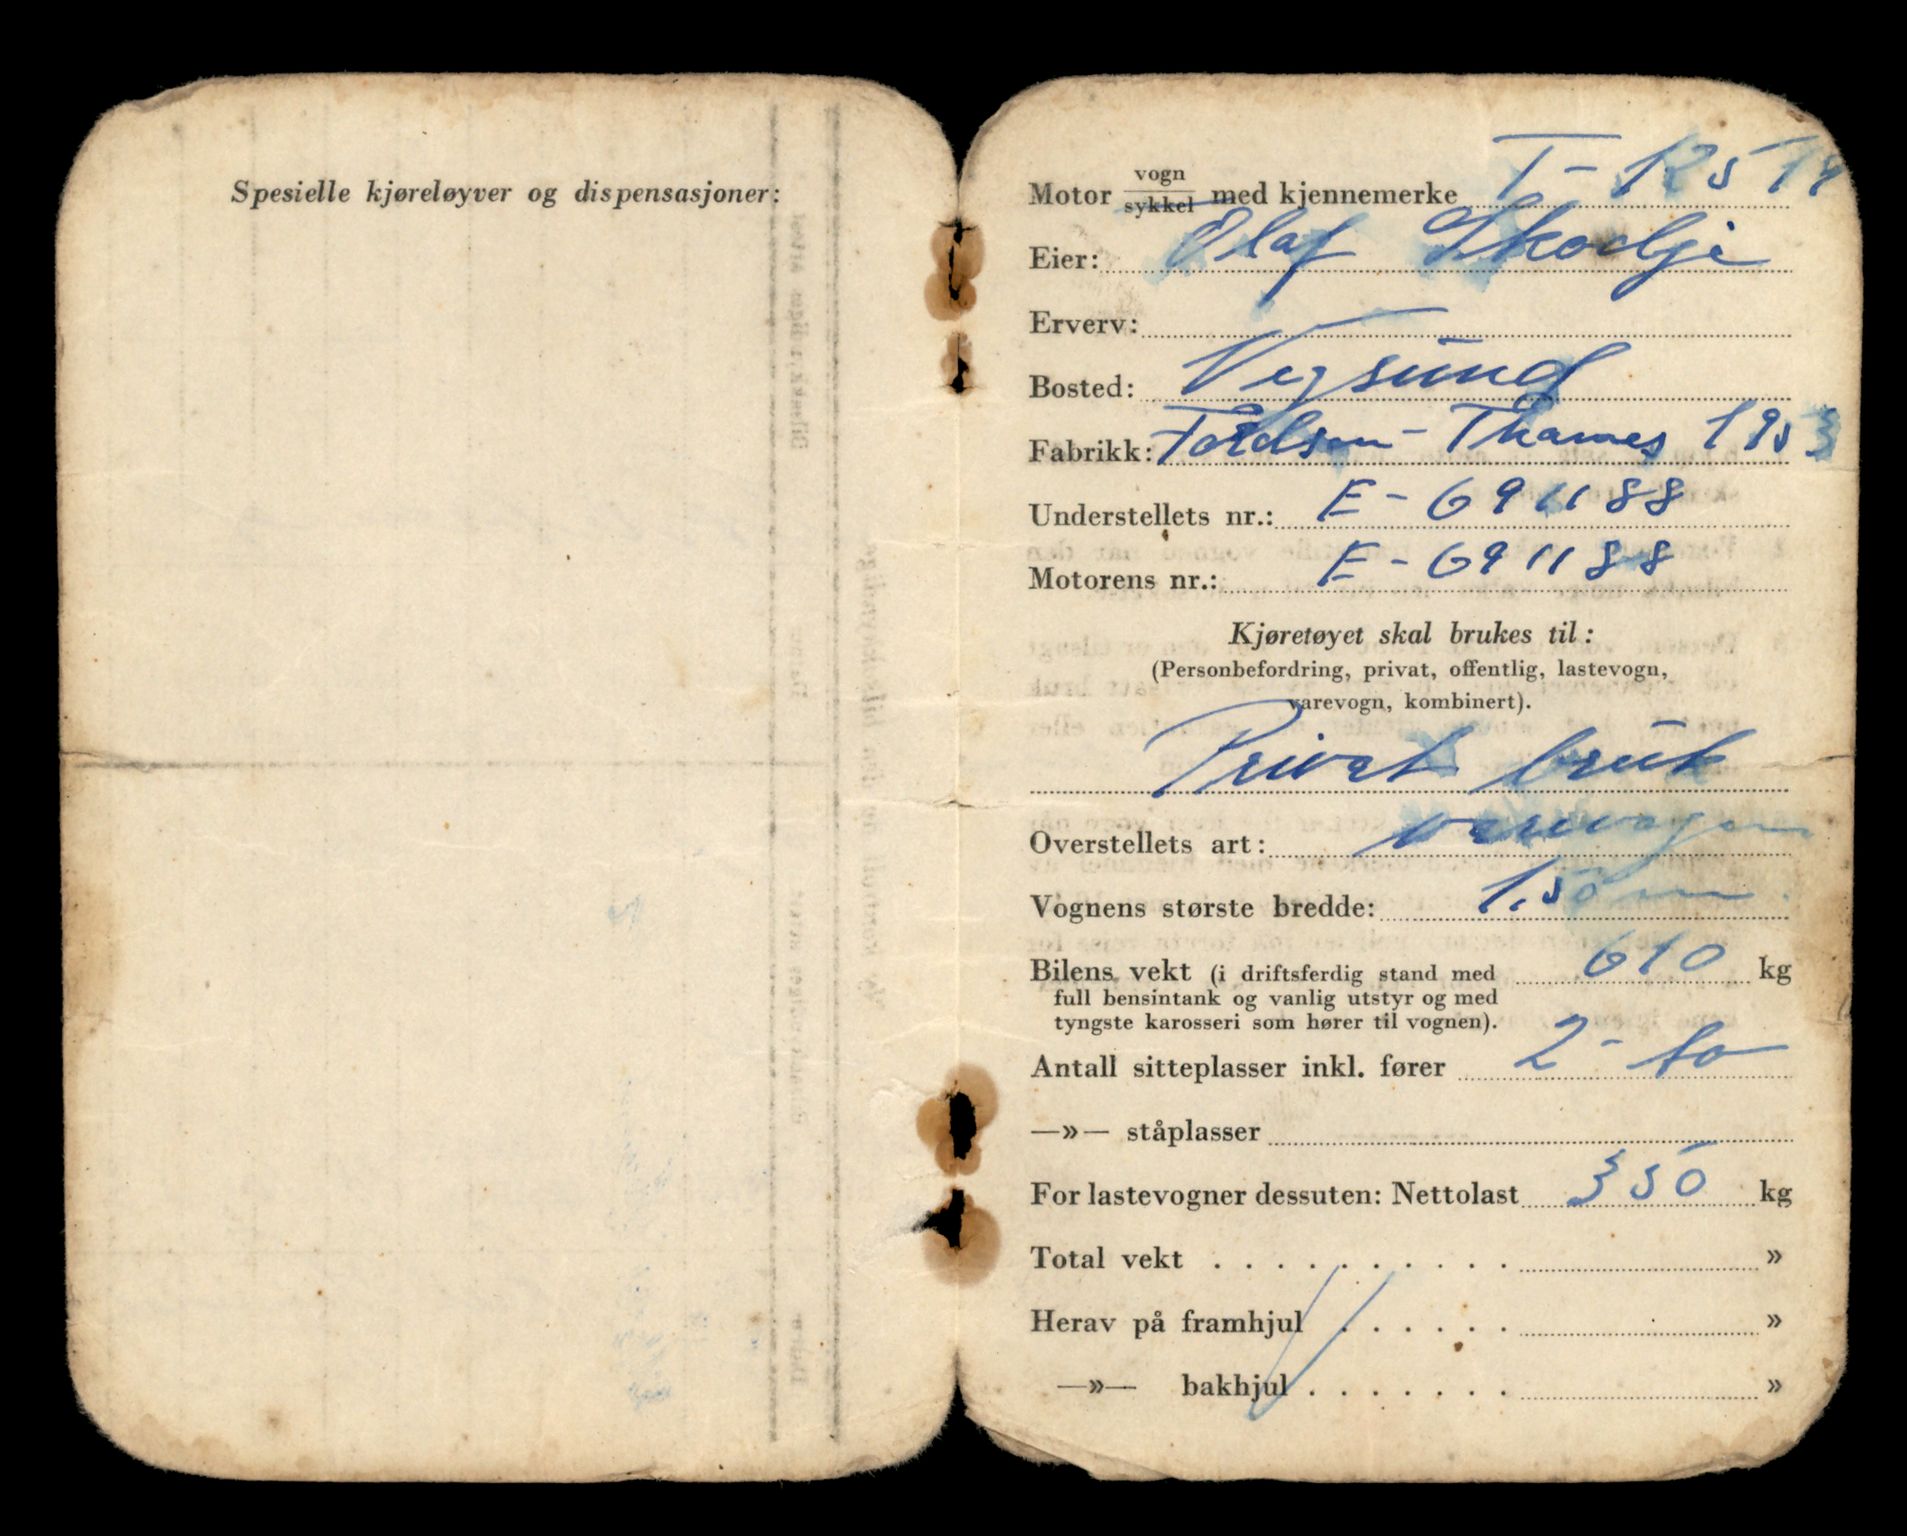 Spesielle kjøreløyver og dispensasjoner:
Motor vogn sykkel med kjennemerke T-12514
Eier: Olaf Skodje
Erverv:
Bosted: Vegsund
Fabrikk: Fordson-Thames 1953
Understellets nr.: E-691188
Motorens nr.: E-691188
Kjøretøyet skal brukes til:
(Personbefordring, privat, offentlig, lastevogn,
varevogn, kombinert).
Privat bruk
Overstellets art: varevogn
Vognens største bredde: 1.50 m.
Bilens vekt (i driftsferdig stand med 610 kg
full bensintank og vanlig utstyr og med
tyngste karosseri som hører til vognen).
Antall sitteplasser inkl. fører 2- to
—»— ståplasser
For lastevogner dessuten: Nettolast 350 kg
Total vekt . . . . . . . . . . »
Herav på framhjul . . . . . . »
—»— bakhjul . . . . . . . »